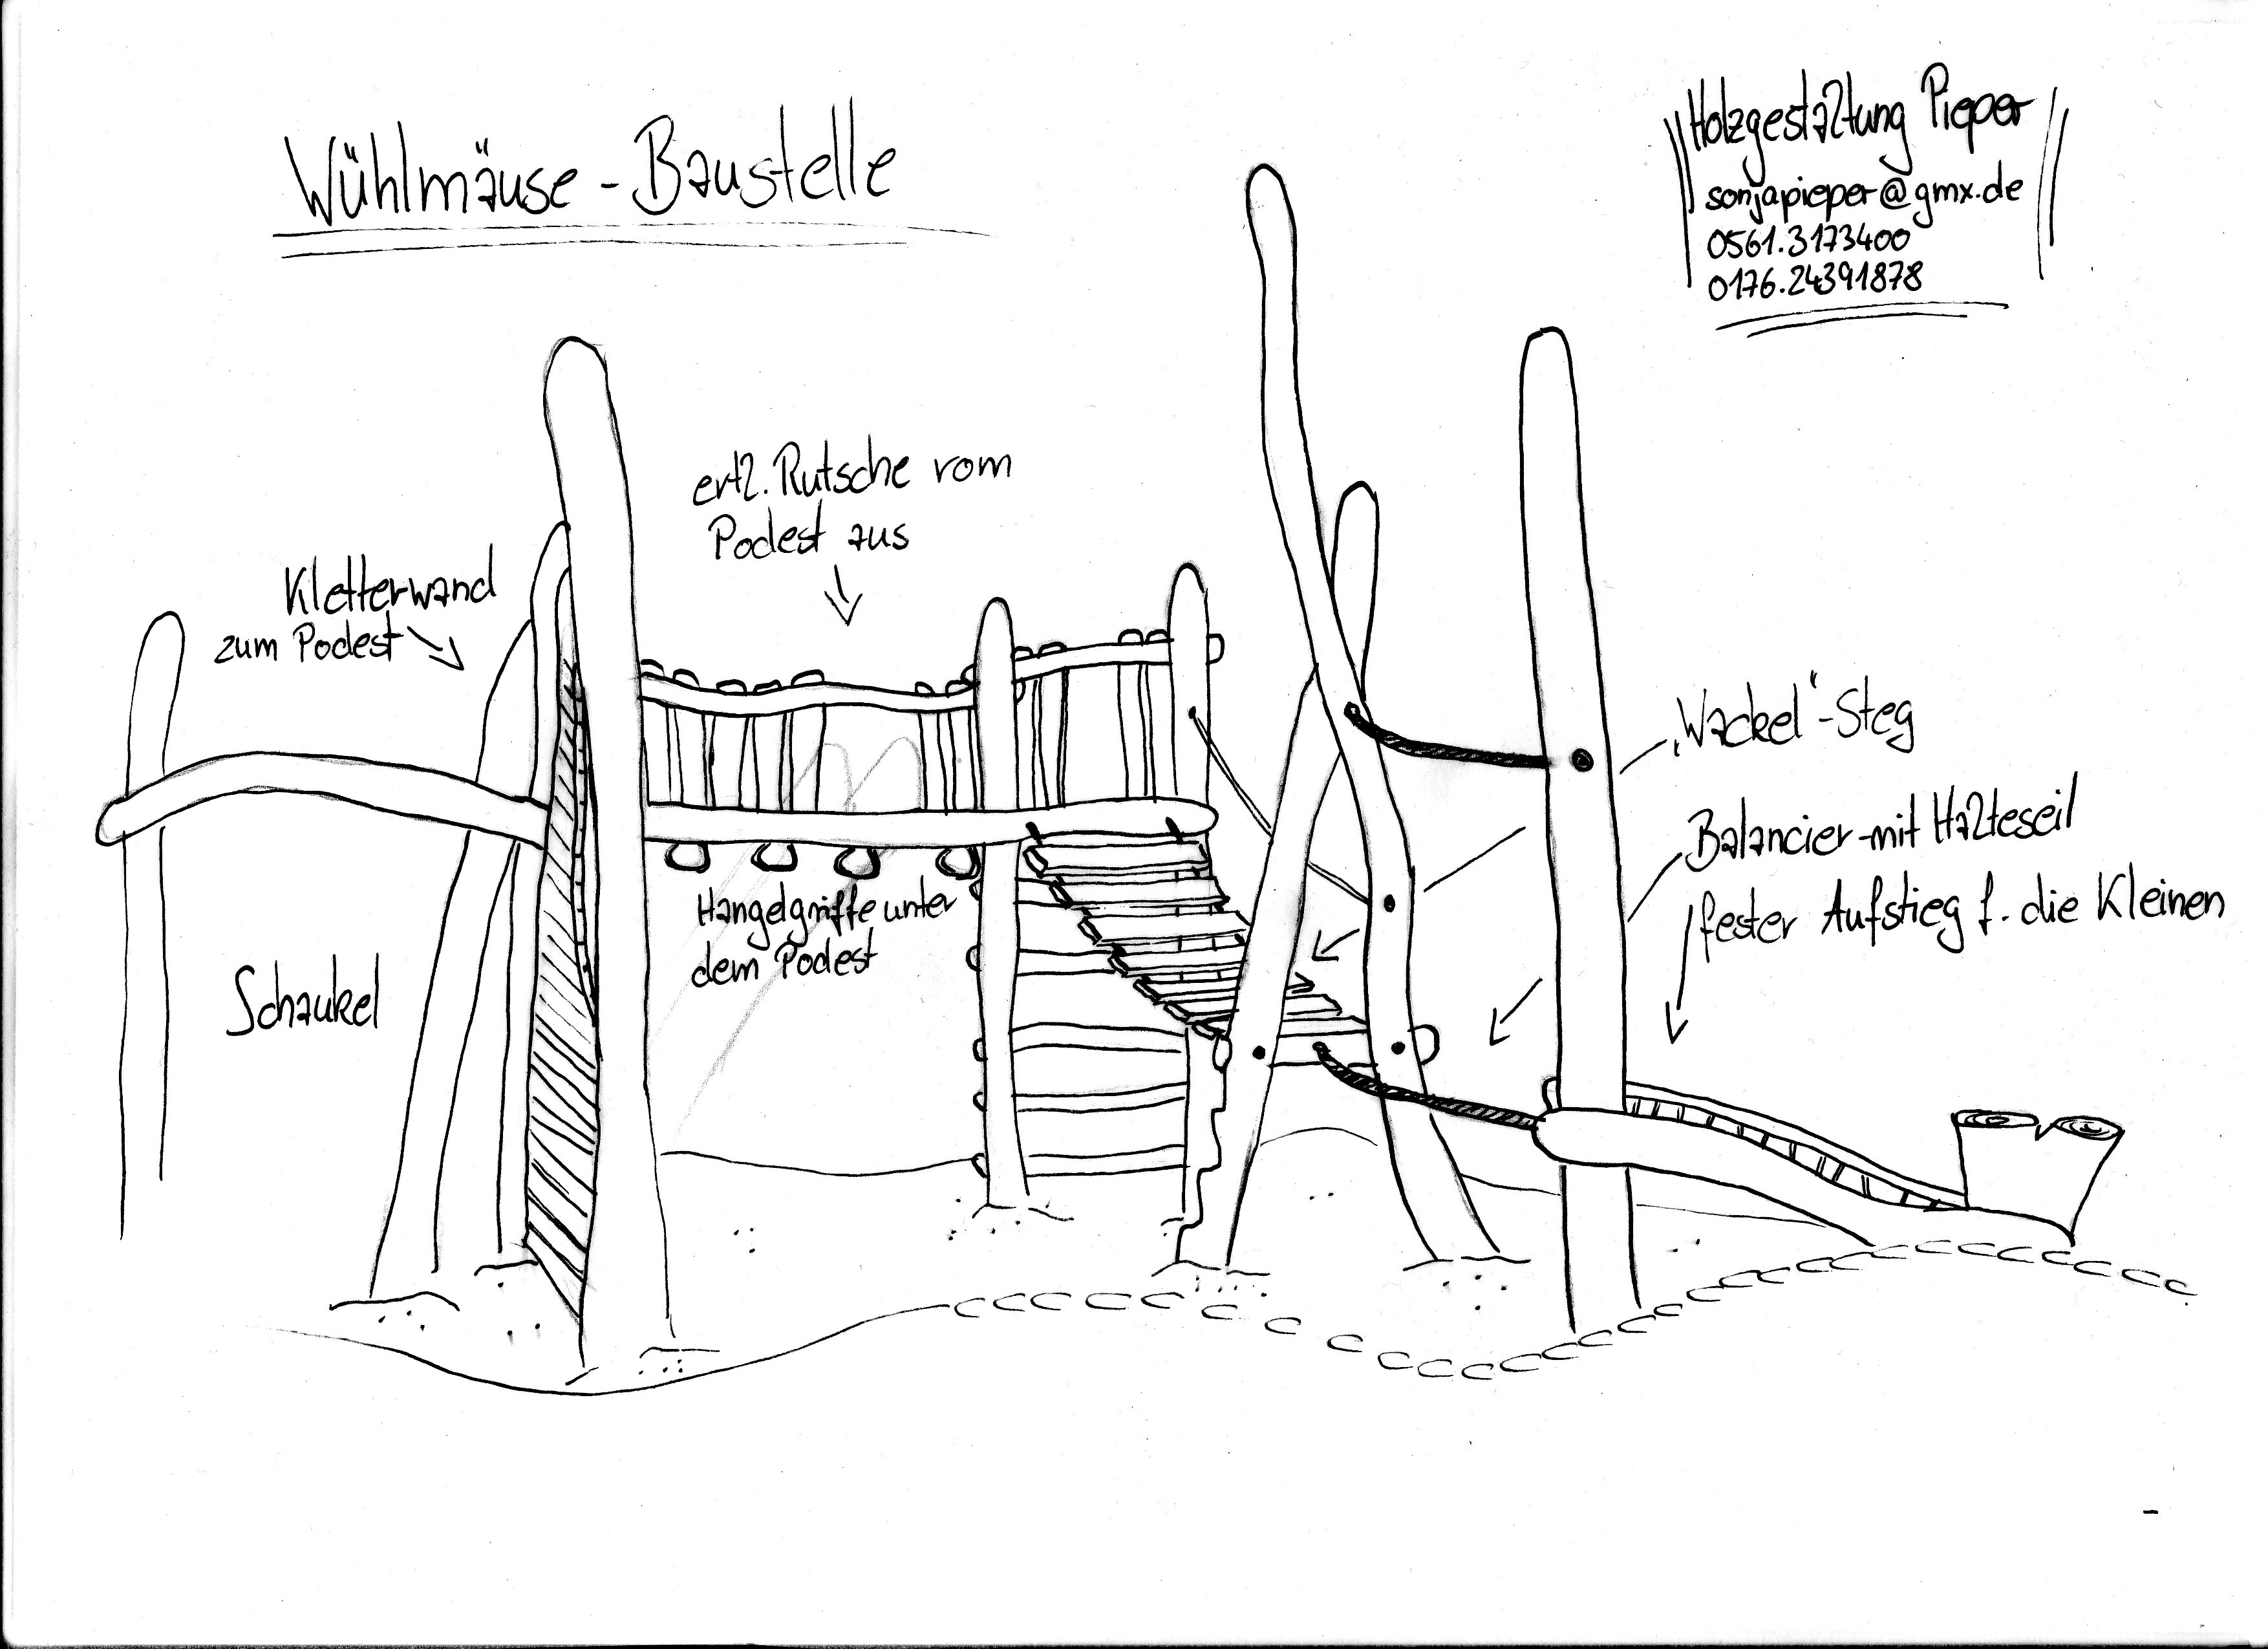 Wühlmäuse-Baustelle
Holzgestaltung Pieper
sonjapieper@gmx.de
0561.3173400
0176.24391878
ertl. Rutsche vom
Podest aus
Kletterwand
zum Podest
„Wackel"-Steg
Balancier-mit Halteseil
fester Aufstieg f. die Kleinen
Hangelgriffe unter
dem Podest
Schaukel